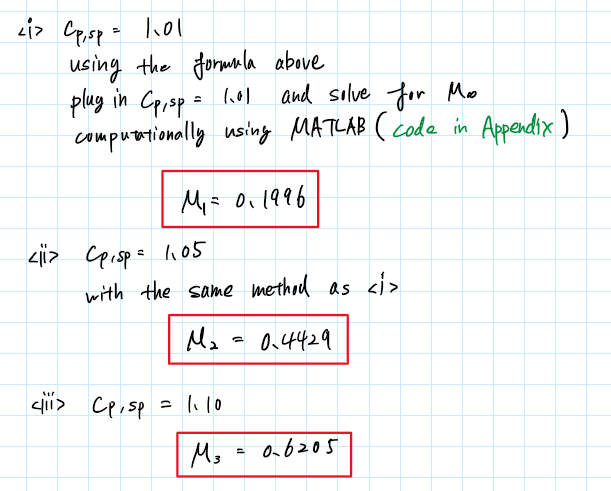 <i> Cp,sp = 1.01
using the formula above
plug in Cp,sp = 1.01 and solve for M∞
computationally using MATLAB (code in Appendix)
M₁ = 0.1996
<ii> Cp,sp = 1.05
with the same method as <i>
M₂ = 0.4429
<iii> Cp,sp = 1.10
M₃ = 0.6205